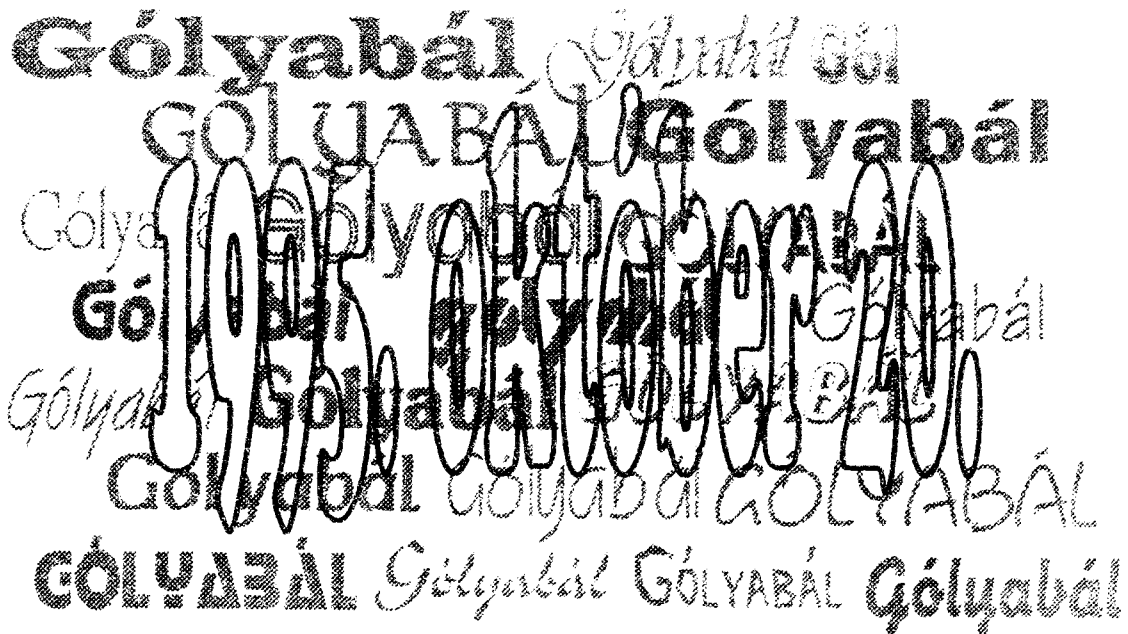 Gólyabál Gólyabál Gól
GÓLYABÁL Gólyabál
1995. október 20.
Gólyabál Gólyabál GÓLYABÁL
Gólyabál Gólyabál Gólyabál
Gólyabál Gólyabál GÓLYABÁL
Gólyabál Gólyabál GÓLYABÁL
GÓLYABÁL Gólyabál GÓLYABÁL Gólyabál